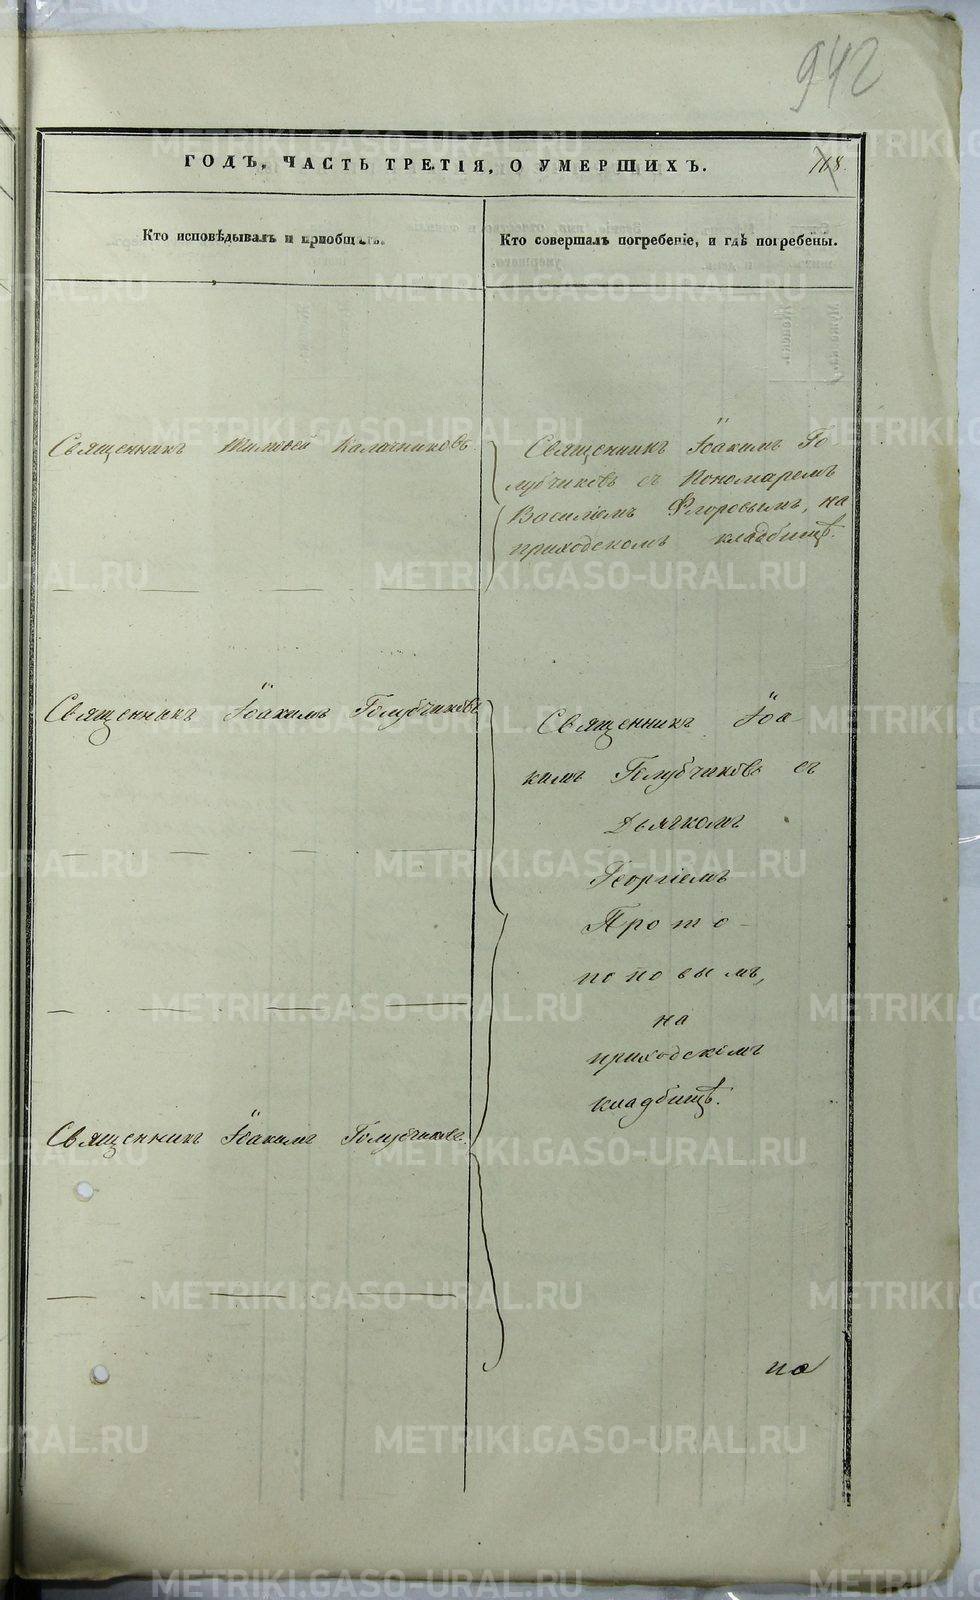 942
ГОДЪ, ЧАСТЬ ТРЕТІЯ, О УМЕРШИХЪ.
118.
Кто исповѣдывалъ и пріобщалъ.
Кто совершалъ погребеніе, и гдѣ погребены.
Священникъ Тимофей Калачниковъ
Священникъ Іоакимъ Го
лубчиковъ съ Пономаремъ
Василіемъ Флоровымъ, на
приходскомъ кладбищѣ.
Священникъ Іоакимъ Голубчиковъ
Священникъ Іоа-
кимъ Голубчиковъ съ
Дьячкомъ
Георгіемъ
Прото-
поповымъ,
на
приходскімъ
кладбищѣ.
Священникъ Іоакимъ Голубчиковъ.
по
METRIKI.GASO-URAL.RU